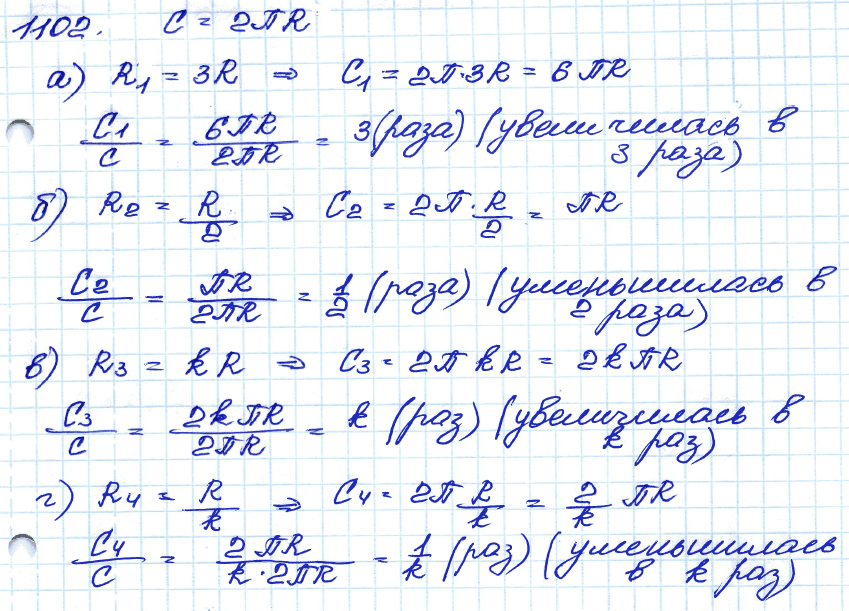 1102. C = 2πR
а) R₁ = 3R ⇒ C₁ = 2π·3R = 6πR
C₁/C = 6πR/2πR = 3(раза) (увеличилась в
3 раза)
б) R₂ = R/2 ⇒ C₂ = 2π·R/2 = πR
C₂/C = πR/2πR = 1/2 (раза) (уменьшилась в
2 раза)
в) R₃ = kR ⇒ C₃ = 2πkR = 2kπR
C₃/C = 2kπR/2πR = k (раз) (увеличилась в
k раз)
г) R₄ = R/k ⇒ C₄ = 2π R/k = 2/k πR
C₄/C = 2πR/k·2πR = 1/k (раз) (уменьшилась
в k раз)